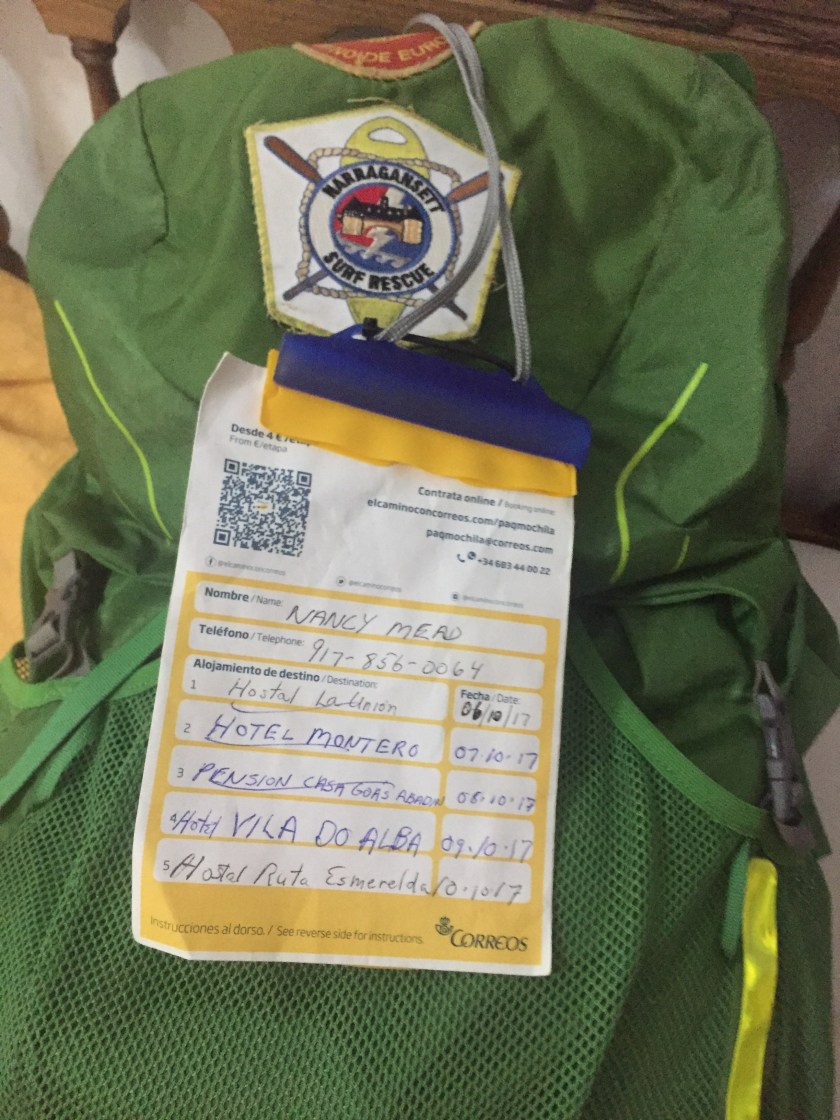 NARRAGANSETT
SURF RESCUE
Desde 4 €
From €/etapa
Contrata online / Booking online:
elcaminoconcorreos.com/paqmochila
paqmochila@correos.com
+34 683 44 00 22
@elcaminoconcorreos
@elcaminoconcorreos
@elcaminoconcorreos
Nombre / Name: NANCY MEAD
Teléfono / Telephone: 917-856-0064
Alojamiento de destino / Destination: Fecha / Date:
1 Hostal La Unión 06/10/17
2 HOTEL MONTERO 07.10.17
3 PENSION CASA GOAS ABADIN 08.10.17
4 Hotel VILA DO ALBA 09.10.17
5 Hotel Ruta Esmerelda 10.10.17
Instrucciones al dorso. / See reverse side for instructions. CORREOS